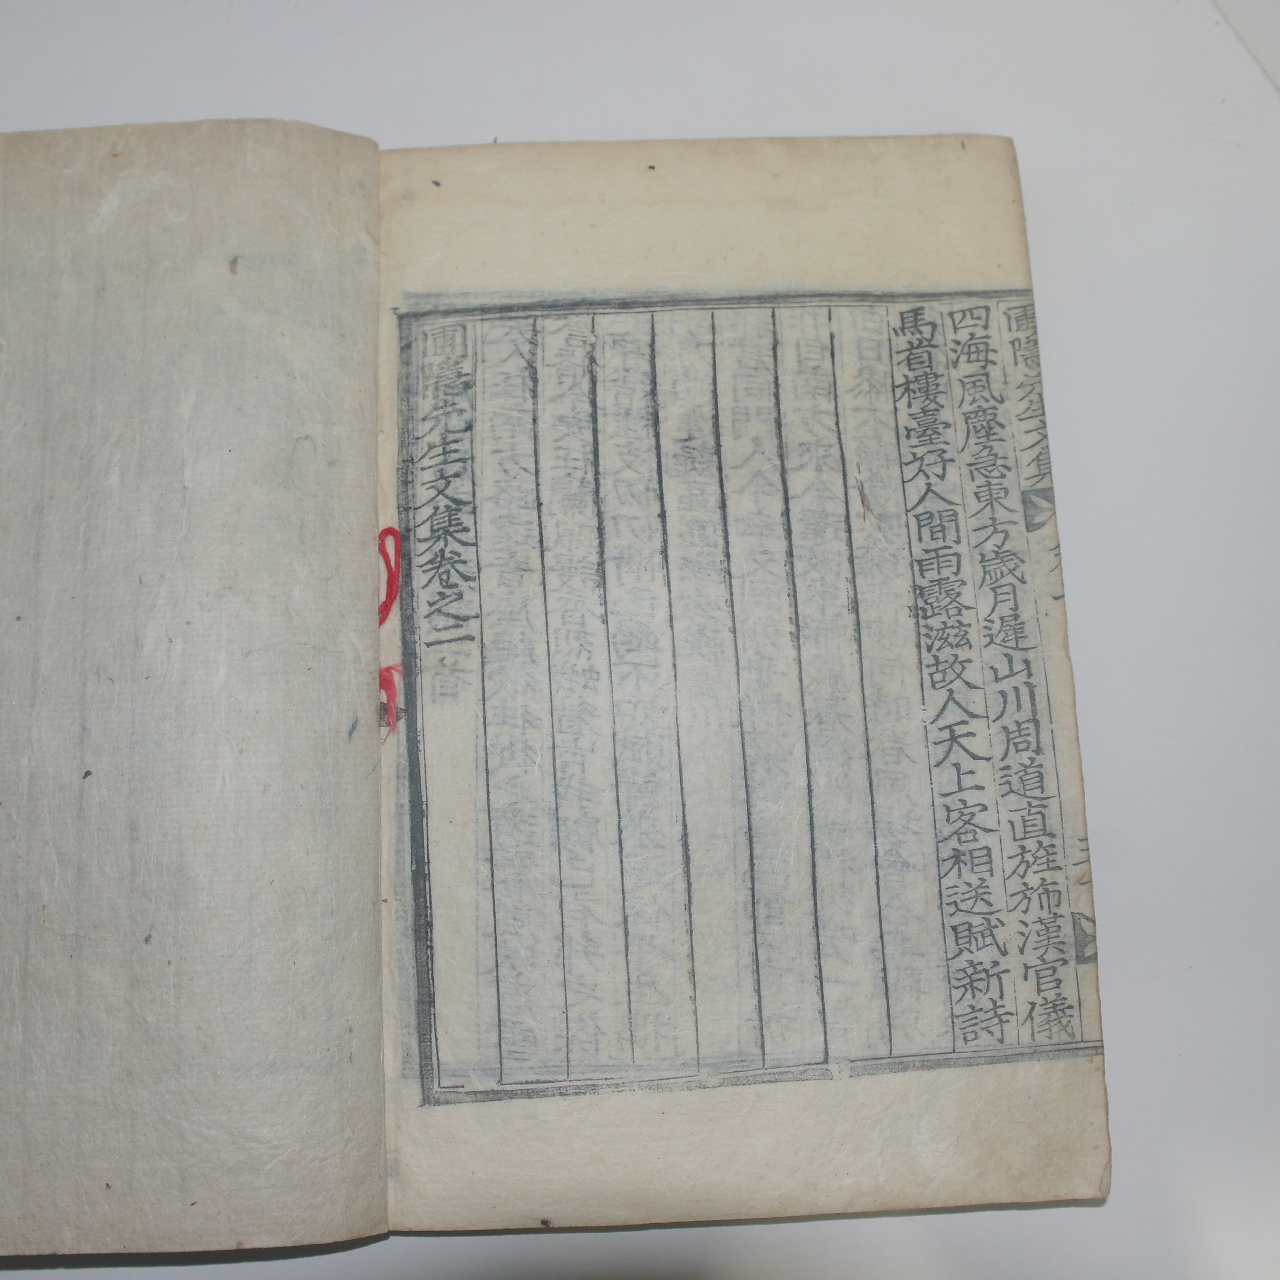 圃隱先生文集
四海風塵急東方歲月遲山川周道直旌旆漢官儀
馬首樓臺好人間雨露滋故人天上客相送賦新詩
圃隱先生文集卷之二